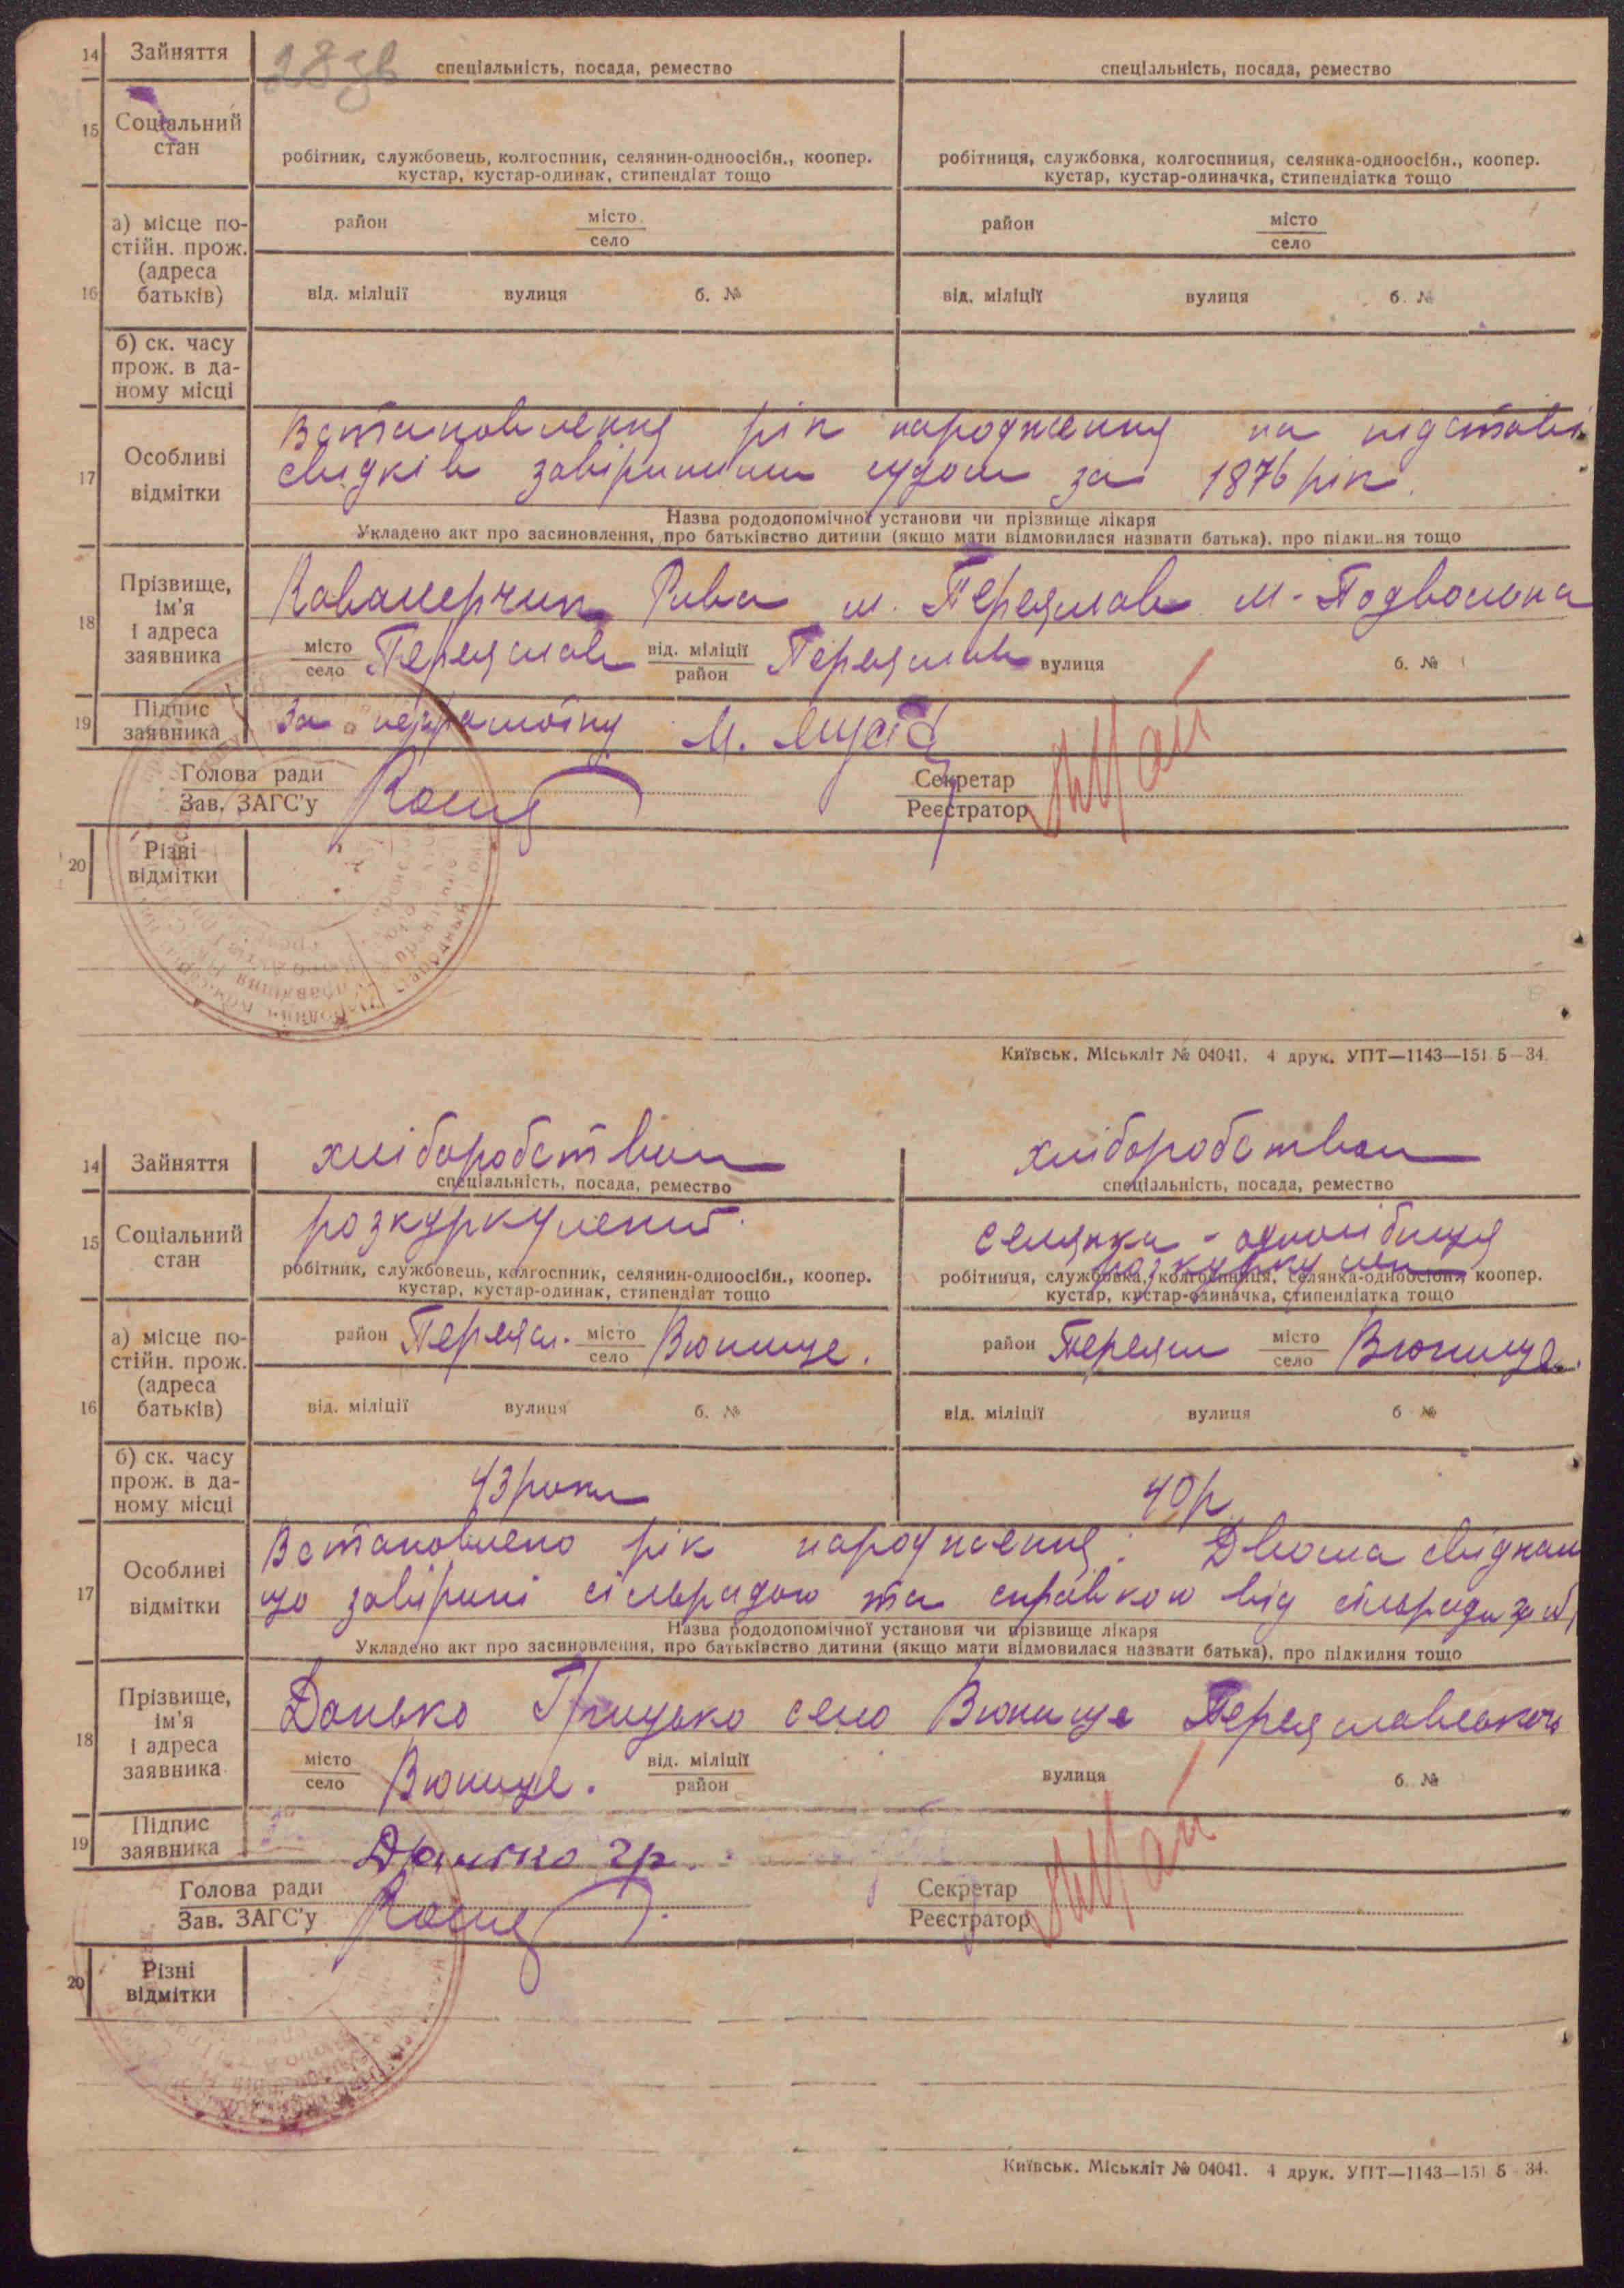 14 Зайняття 28 зв
спеціальність, посада, ремество спеціальність, посада, ремество
15 Соціальний стан
робітник, службовець, колгоспник, селянин-одноосібн., коопер. кустар, кустар-одинак, стипендіат тощо
робітниця, службовка, колгоспниця, селянка-одноосібн., коопер. кустар, кустар-одиначка, стипендіатка тощо
16 а) місце постійн. прож. (адреса батьків)
район місто село район місто село
від. міліції вулиця б. № від. міліції вулиця б. №
б) ск. часу прож. в даному місці
17 Особливі відмітки
Встановлення рік народження на підставі
свидків завіреними судом за 1876 рік.
Назва рододопомічної установи чи прізвище лікаря
Укладено акт про засиновлення, про батьківство дитини (якщо мати відмовилася назвати батька), про підки..ня тощо
18 Прізвище, ім'я і адреса заявника
Рива м. Переяслав
місто село Переяслав від. міліції район Переяслав вулиця б. №
19 Підпис заявника За неграмотну М.
Голова ради Зав. ЗАГС'у Секретар Реєстратор
20 Різні відмітки
Київськ. Міськліт № 04041. 4 друк. УПТ—1143—151 5—34.
14 Зайняття хліборобством хліборобством
спеціальність, посада, ремество спеціальність, посада, ремество
15 Соціальний стан розкуркулений. селянка - одноосібниця
розкуркулен
робітник, службовець, колгоспник, селянин-одноосібн., коопер. кустар, кустар-одинак, стипендіат тощо
робітниця, службовка, колгоспниця, селянка-одноосібн., коопер. кустар, кустар-одиначка, стипендіатка тощо
16 а) місце постійн. прож. (адреса батьків)
район Переясл. місто село Вюнище. район Переясл місто село Вюнище.
від. міліції вулиця б. № від. міліції вулиця б №
б) ск. часу прож. в даному місці 43 роки 40 р
17 Особливі відмітки
Встановлено рік народження. Двома свідками
що завірені сільрадою та справкою від сільради за №
Назва рододопомічної установи чи прізвище лікаря
Укладено акт про засиновлення, про батьківство дитини (якщо мати відмовилася назвати батька), про підкидня тощо
18 Прізвище, ім'я і адреса заявника
Данько Грицько село Вюнище Переяславського
місто село Вюнище. від. міліції район вулиця б. №
19 Підпис заявника Данько Гр.
Голова ради Зав. ЗАГС'у Секретар Реєстратор
20 Різні відмітки
Київськ. Міськліт № 04041. 4 друк. УПТ—1143—151 5-34.